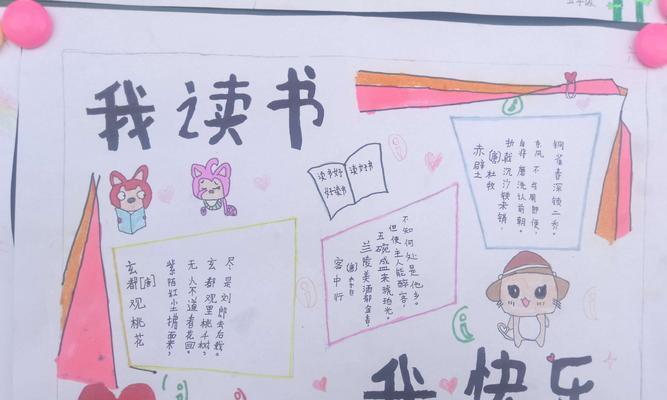 我读书
读书好
好读书
读好书
赤壁之
(唐)杜牧
折戟沉沙铁未销,
自将磨洗认前朝。
东风不与周郎便,
铜雀春深锁二乔。
客中行
(唐)李白
兰陵美酒郁金香,
五碗盛来琥珀光。
但使主人能醉客,
不知何处是他乡。
玄都观桃花
[唐]
紫陌红尘拂面来,
无人不道看花回。
玄都观里桃千树,
尽是刘郎去后栽。
我快乐